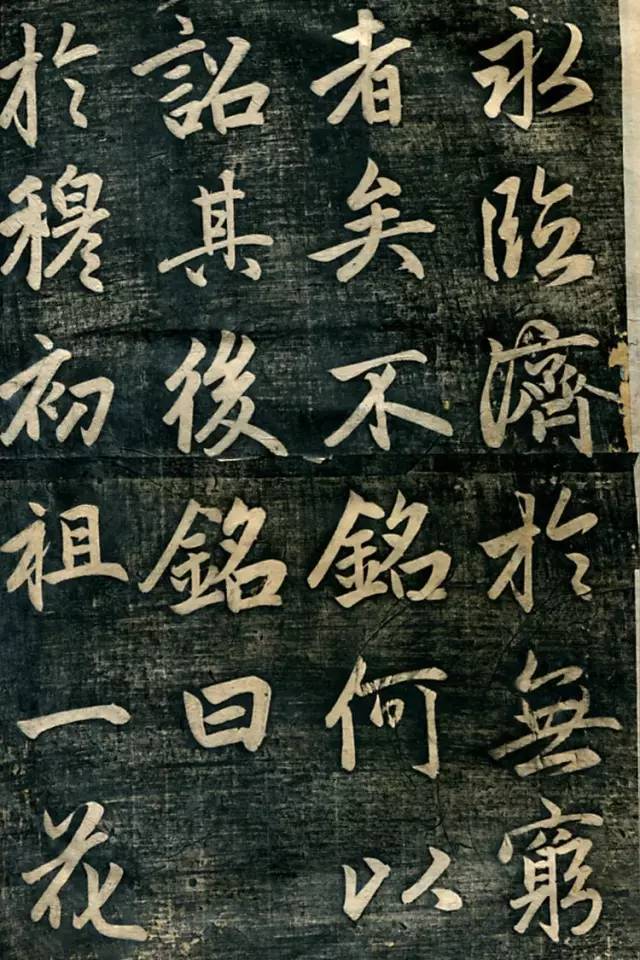 永臨濟於無窮
者矣不銘何以
詔其後銘曰
於穆初祖一花